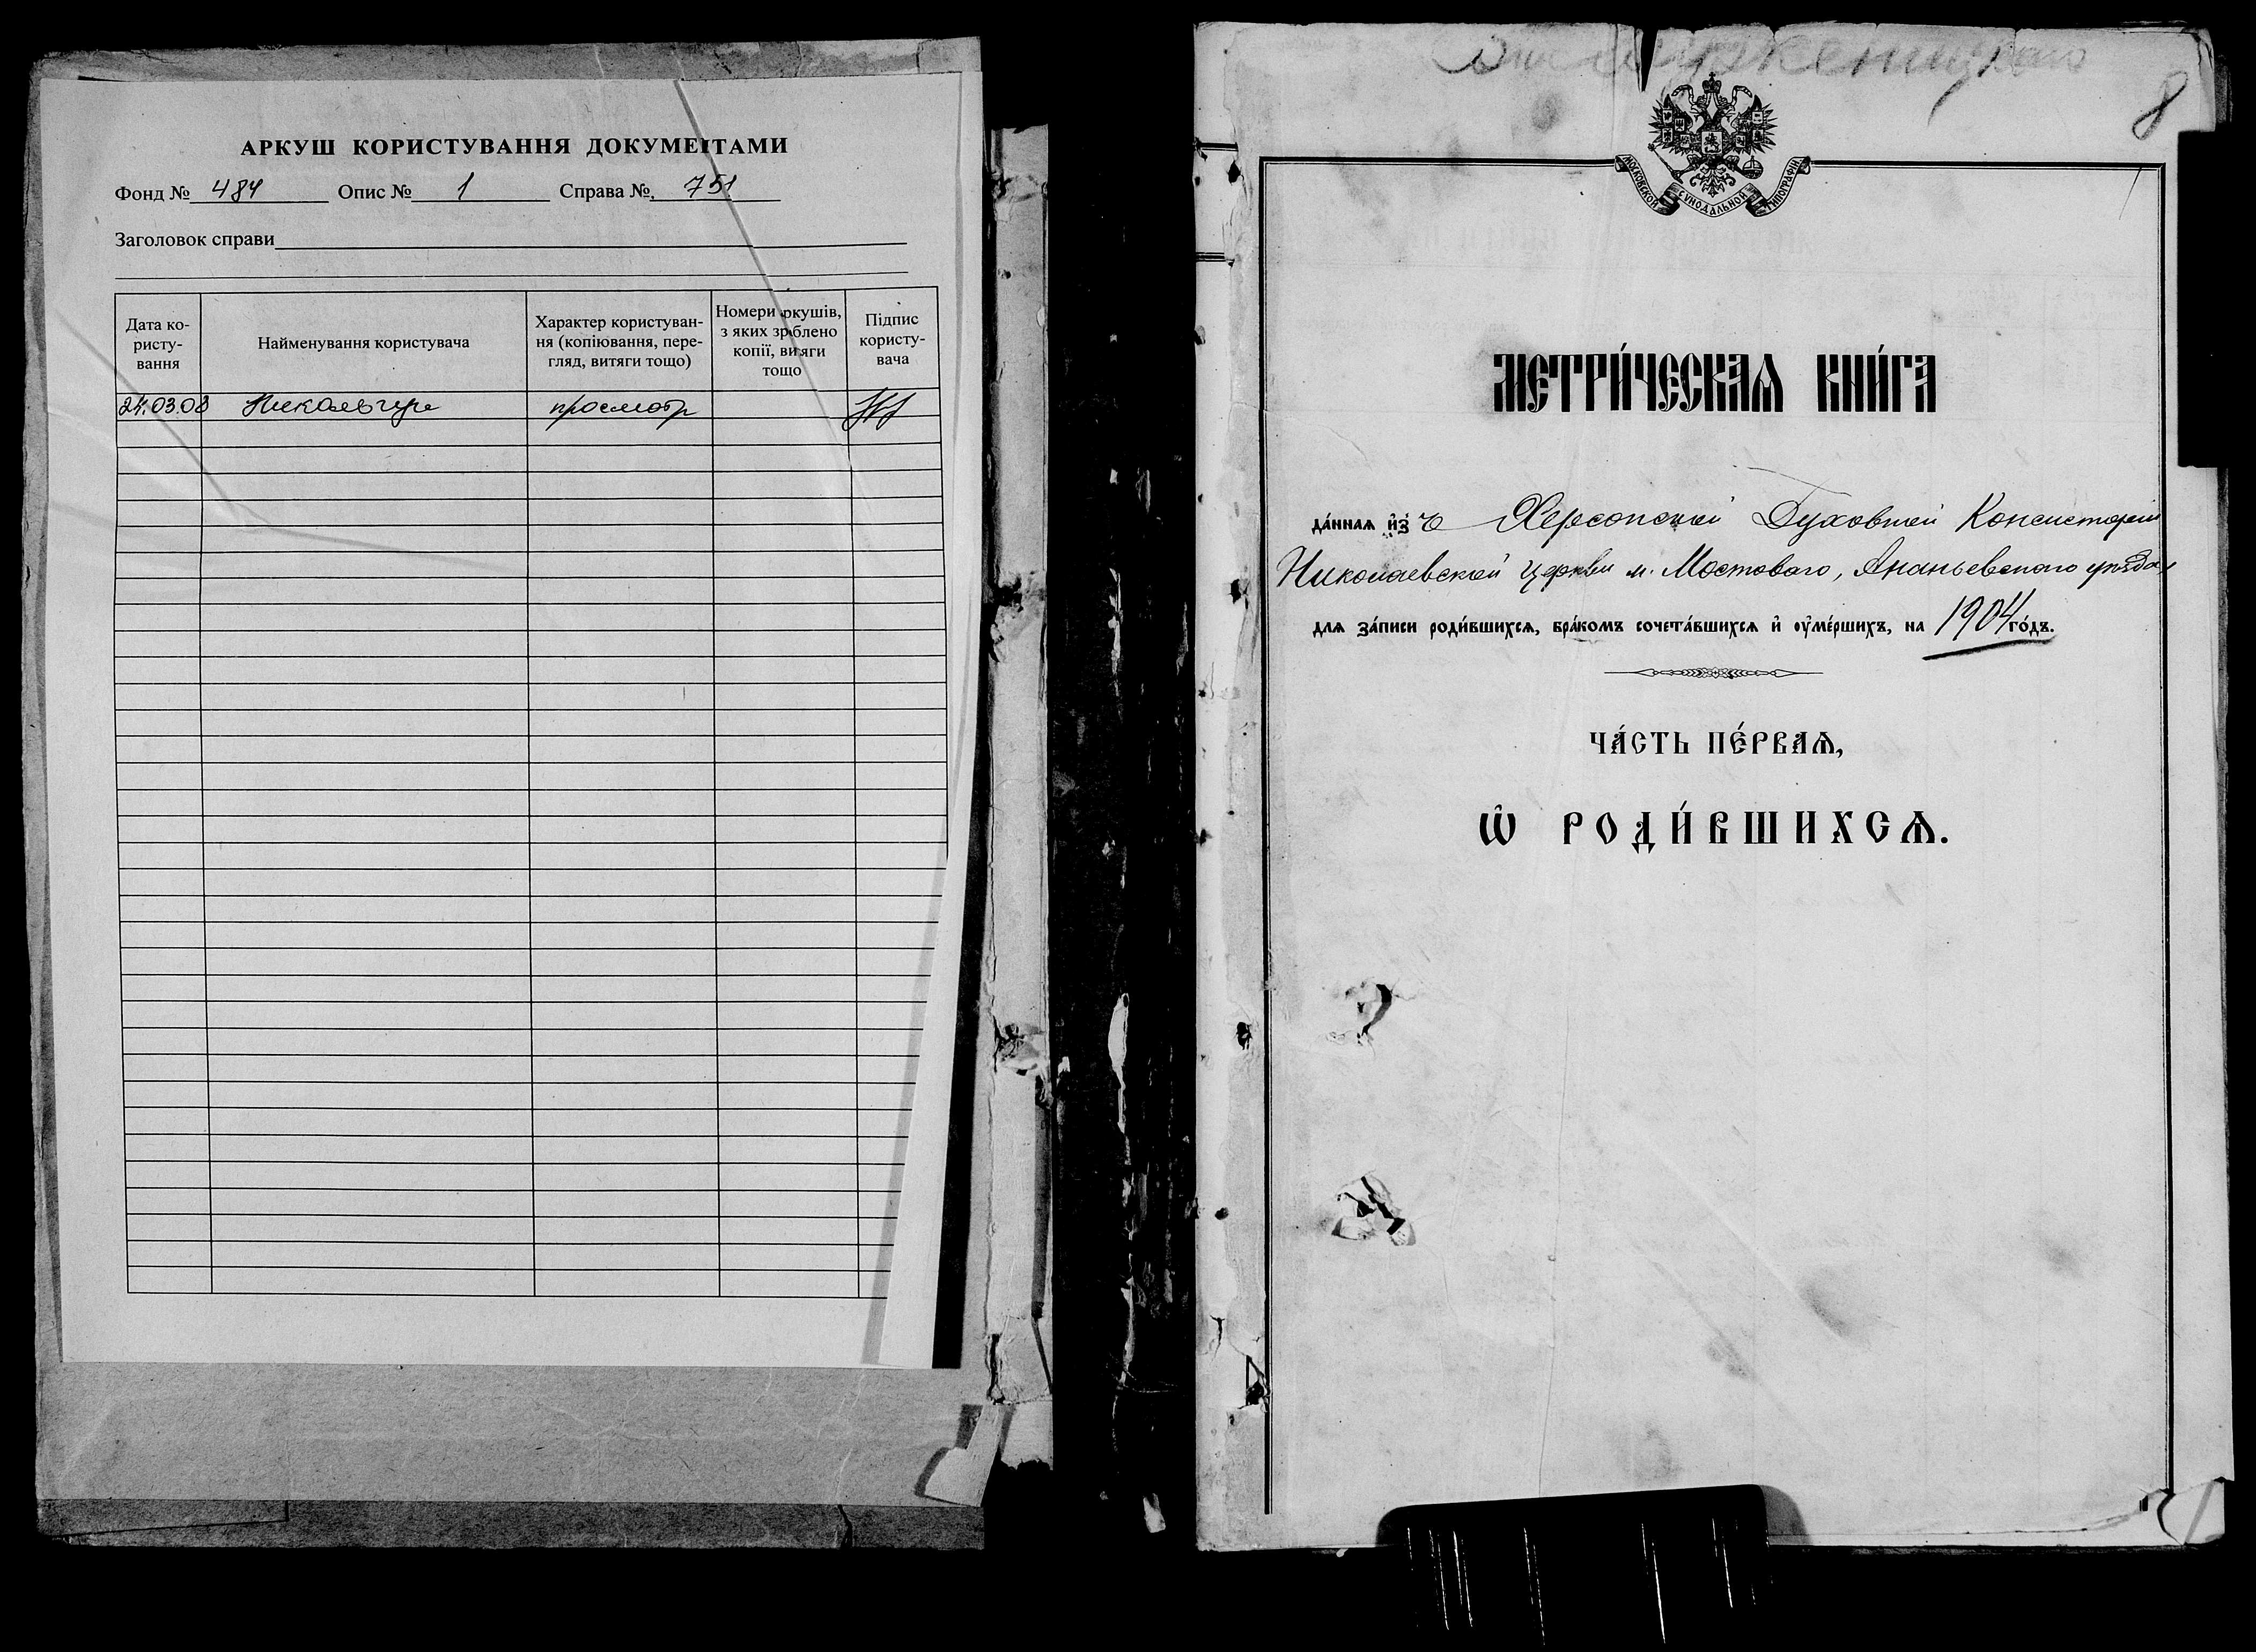 АРКУШ КОРИСТУВАННЯ ДОКУМЕНТАМИ
Фонд № 484 Опис № 1 Справа № 751
Заголовок справи
Дата ко-
ристу-
вання
Найменування користувача
Характер користуван-
ня (копіювання, пере-
гляд, витяги тощо)
Номери аркушів,
з яких зроблено
копії, витяги
тощо
Підпис
користу-
вача
24.03.08 просмотр
8
МОСКОВСКОЙ СѴНОДАЛЬНОЙ ТИПОГРАФІИ
МЕТРИ́ЧЕСКАѦ КНИ́ГА
да́ннаѧ и҆зъ Херсонской Духовной Консисторіи
Николаевской церкви м. Мостоваго, Ананьевскаго уѣзда,
для за́писи роди́вшихсѧ, бра́комъ сочета́вшихсѧ и҆ ᲂу҆ме́ршихъ, на 1904 го́дъ.
ЧА́СТЬ ПЕ́РВАѦ,
Ѽ РОДИ́ВШИХСѦ.